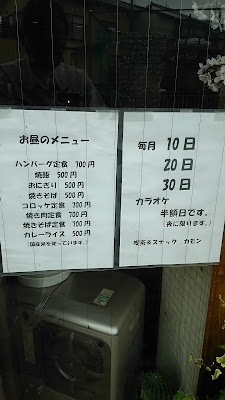 お昼のメニュー
ハンバーグ定食 700円
焼飯 500円
おにぎり 500円
焼きそば 500円
コロッケ定食 700円
焼き肉定食 700円
焼きそば定食 700円
カレーライス 500円
(国産米を使っています。)
毎月 10日
20日
30日
カラオケ
半額日です。
(夜に限ります。)
喫茶&スナック カモン